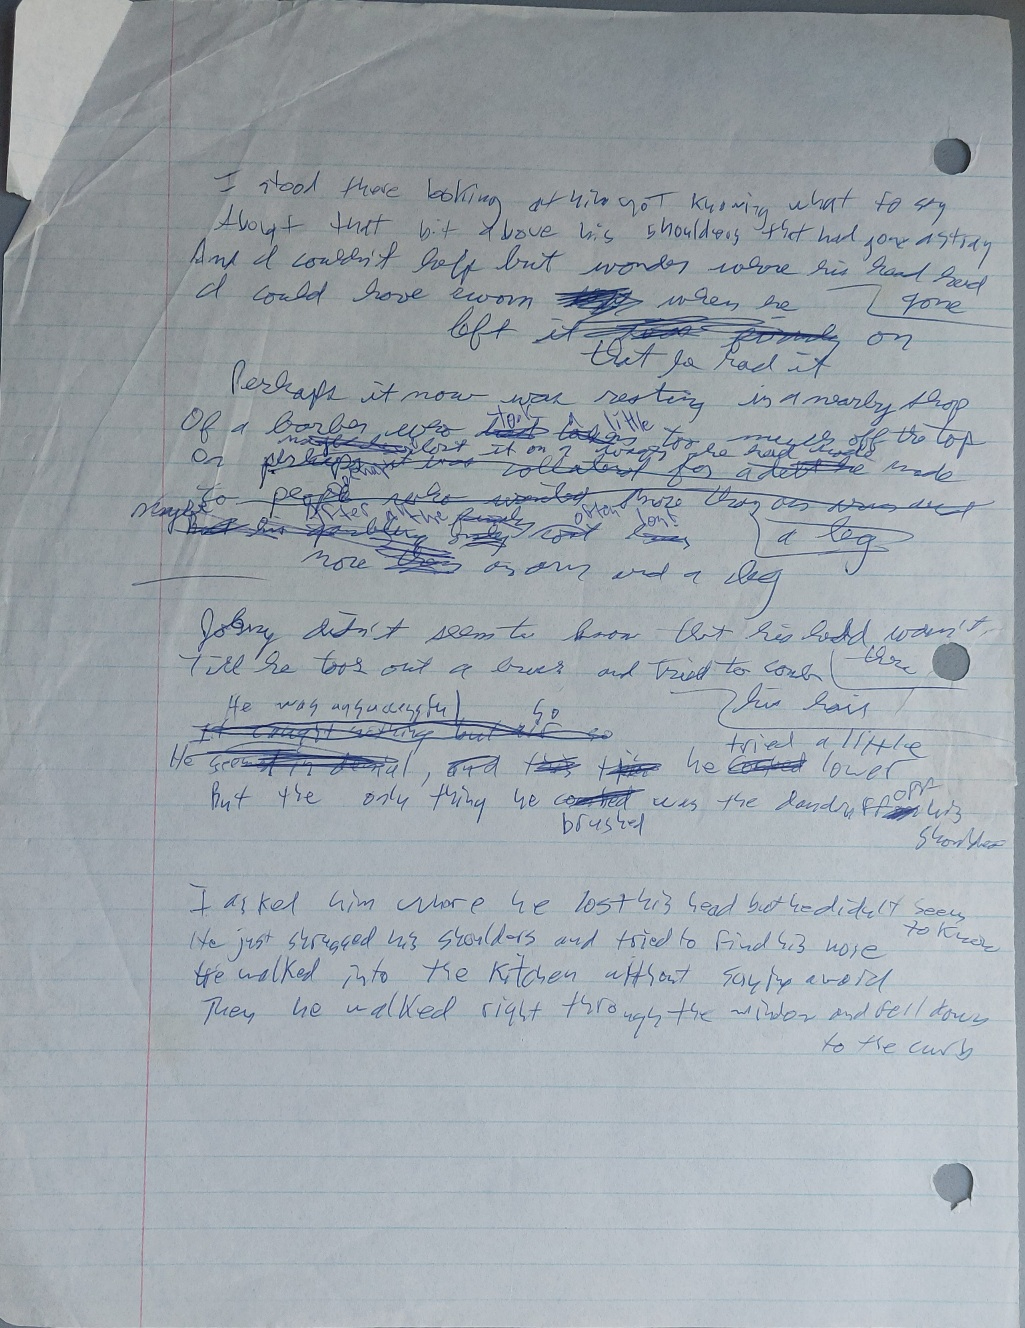 I stood there looking at him not knowing what to say
About that bit above his shoulders that had gone astray
And I couldn't help but wonder where his head had
gone
I could have sworn when he
left it on
that he had it
Perhaps it now was resting in a nearby shop
Of a barber who took a little too much off the top
Or perhaps lost it on a he had made
collateral for a made
to people who wanted more than
Maybe After all the often
a leg
more an arm and a leg
Johnny didn't seem to know that his head wasn't
there
Till he took out a brush and tried to comb
his hair
He was unsuccessful so
It caught nothing but air so
tried a little
He seemed in denial, and this time he lower
But the only thing he combed was the dandruff off his
brushed shoulder
I asked him where he lost his head but he didn't seem
to know
He just shrugged his shoulders and tried to find his nose
He walked into the kitchen without saying a word
Then he walked right through the window and fell down
to the curb